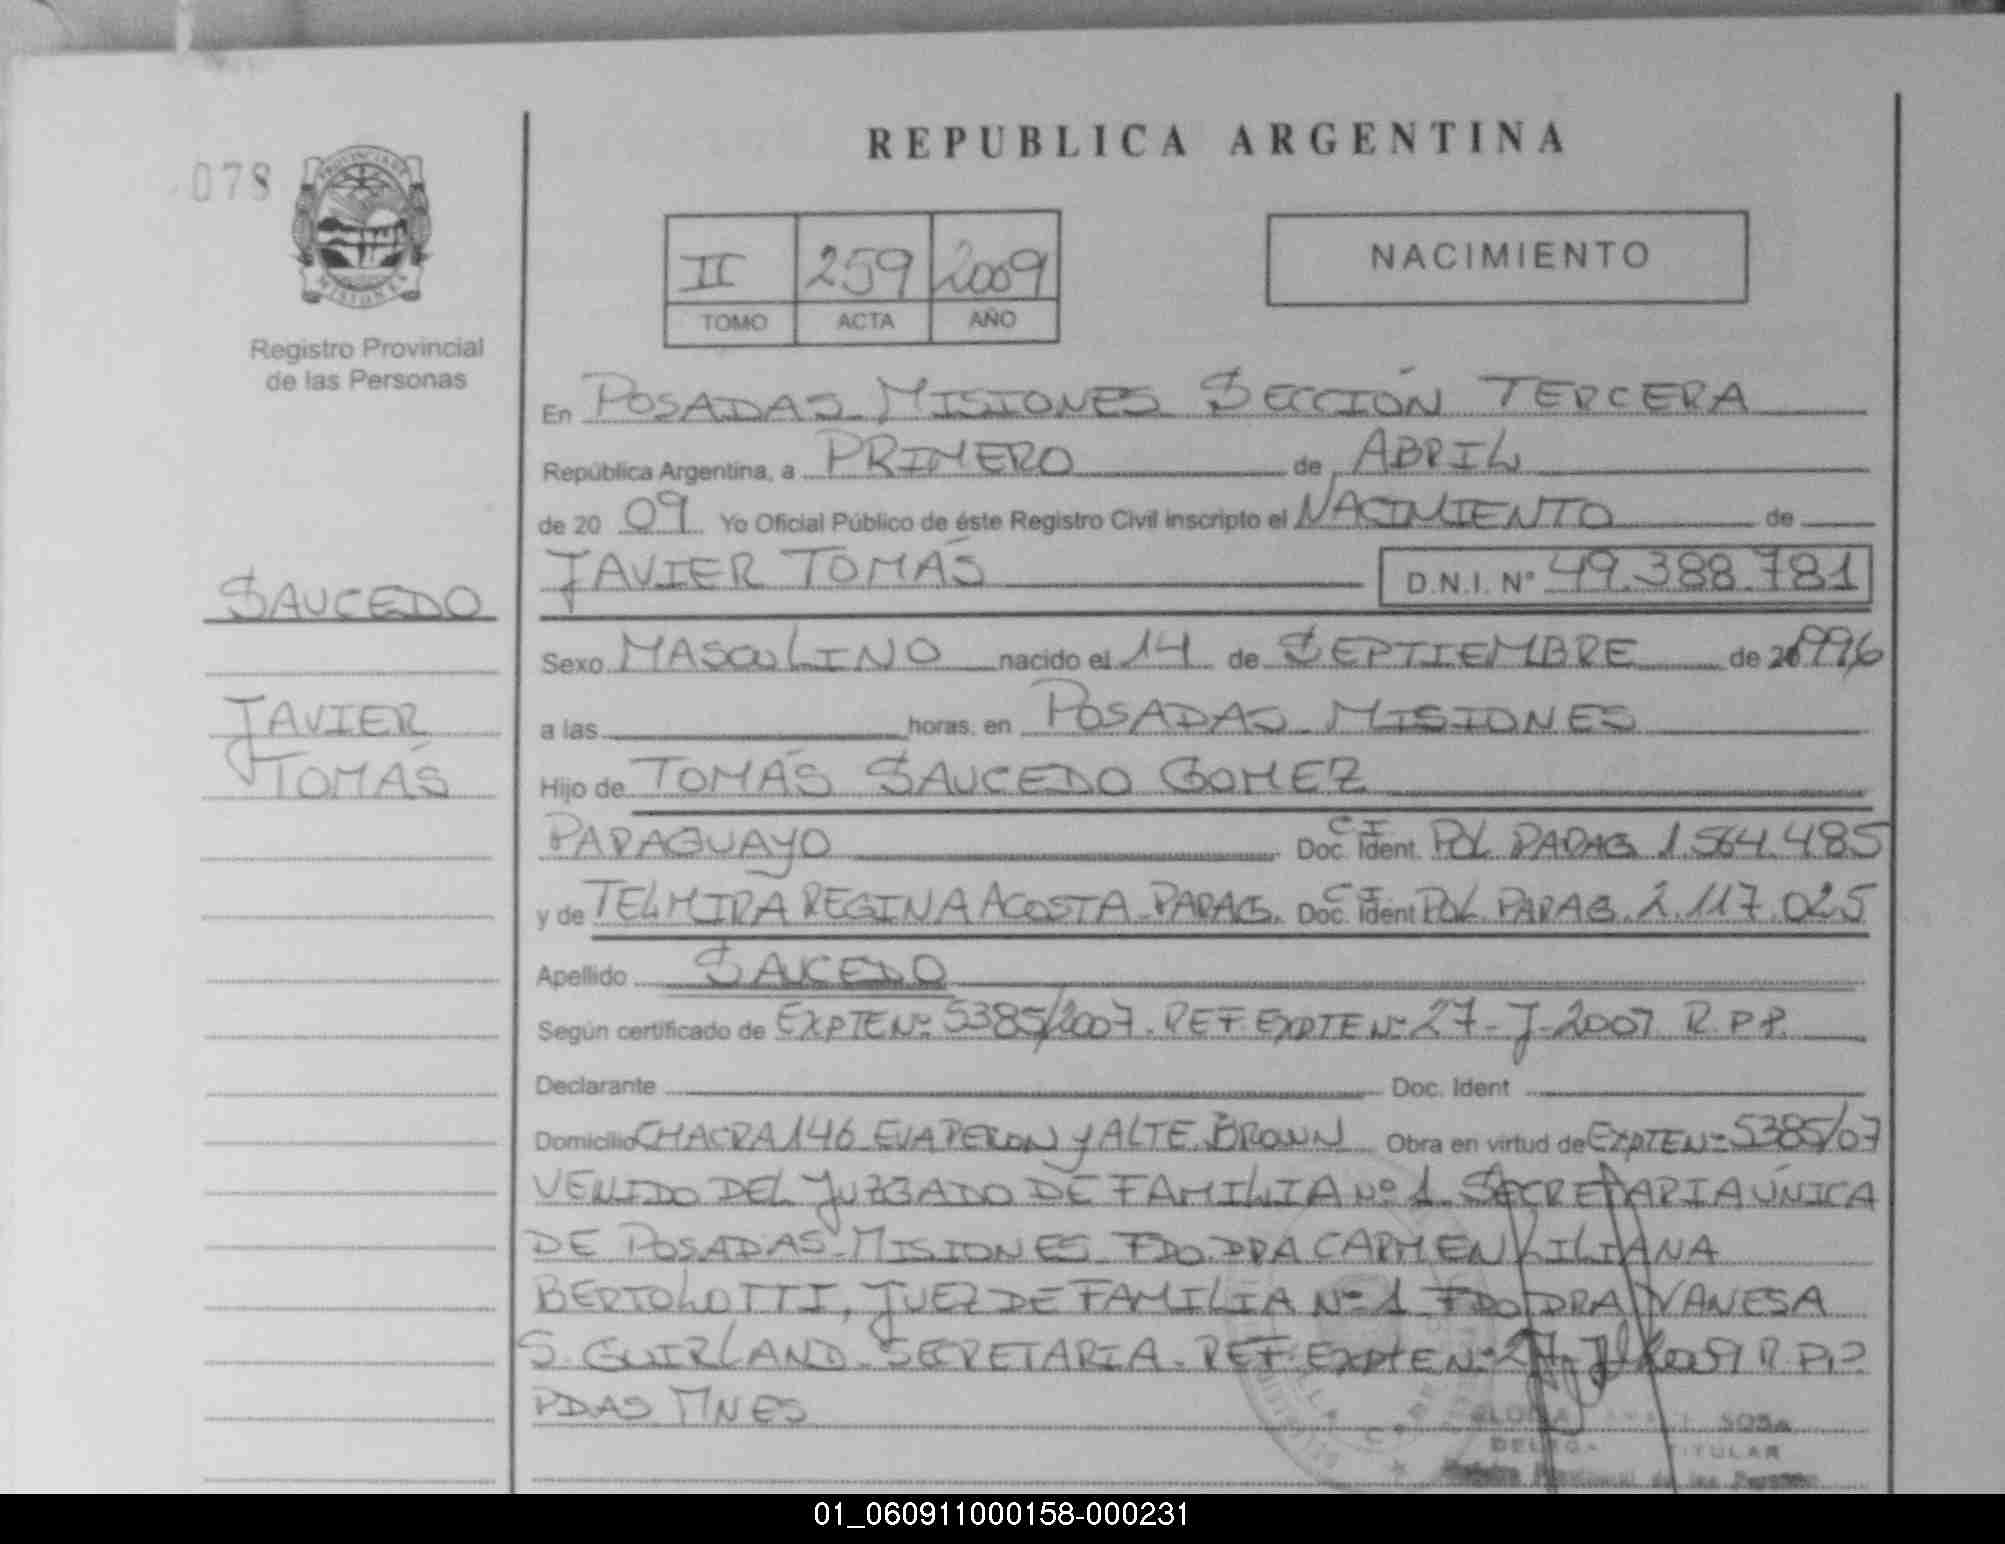 REPUBLICA ARGENTINA
078
PROVINCIA DE
MISIONES
Registro Provincial
de las Personas
II 259 2009
TOMO ACTA AÑO
NACIMIENTO
En POSADAS MISIONES SECCIÓN TERCERA
República Argentina, a PRIMERO de ABRIL
de 20 09 Yo Oficial Público de éste Registro Civil inscripto el NACIMIENTO de
JAVIER TOMÁS D.N.I. Nº 49.388.781
SAUCEDO
JAVIER
TOMÁS
Sexo MASCULINO nacido el 14 de SEPTIEMBRE de 1996
a las horas, en POSADAS MISIONES
Hijo de TOMÁS SAUCEDO GOMEZ
PARAGUAYO Doc. Ident. CI POL PARAG 1.564.485
y de TELMIRA REGINA ACOSTA PARAG. Doc. Ident CI POL PARAG 2.117.025
Apellido SAUCEDO
Según certificado de EXPTE Nº 5385/2007. REF. EXPTE Nº 27-J-2007 R.P.P.
Declarante Doc. Ident
Domicilio CHACRA 146 EVA PERON Y ALTE. BROWN Obra en virtud de EXPTE Nº 5385/07
VENIDO DEL JUZGADO DE FAMILIA Nº 1 SECRETARIA ÚNICA
DE POSADAS MISIONES FDO. DRA CARMEN LILIANA
BERTOLOTTI, JUEZ DE FAMILIA Nº 1 FDO DRA VANESA
S. GUIRLAND. SECRETARIA. REF. EXPTE Nº 27 R.P.P
PDAS MNES
SOSA
TITULAR
de las Personas
01_060911000158-000231